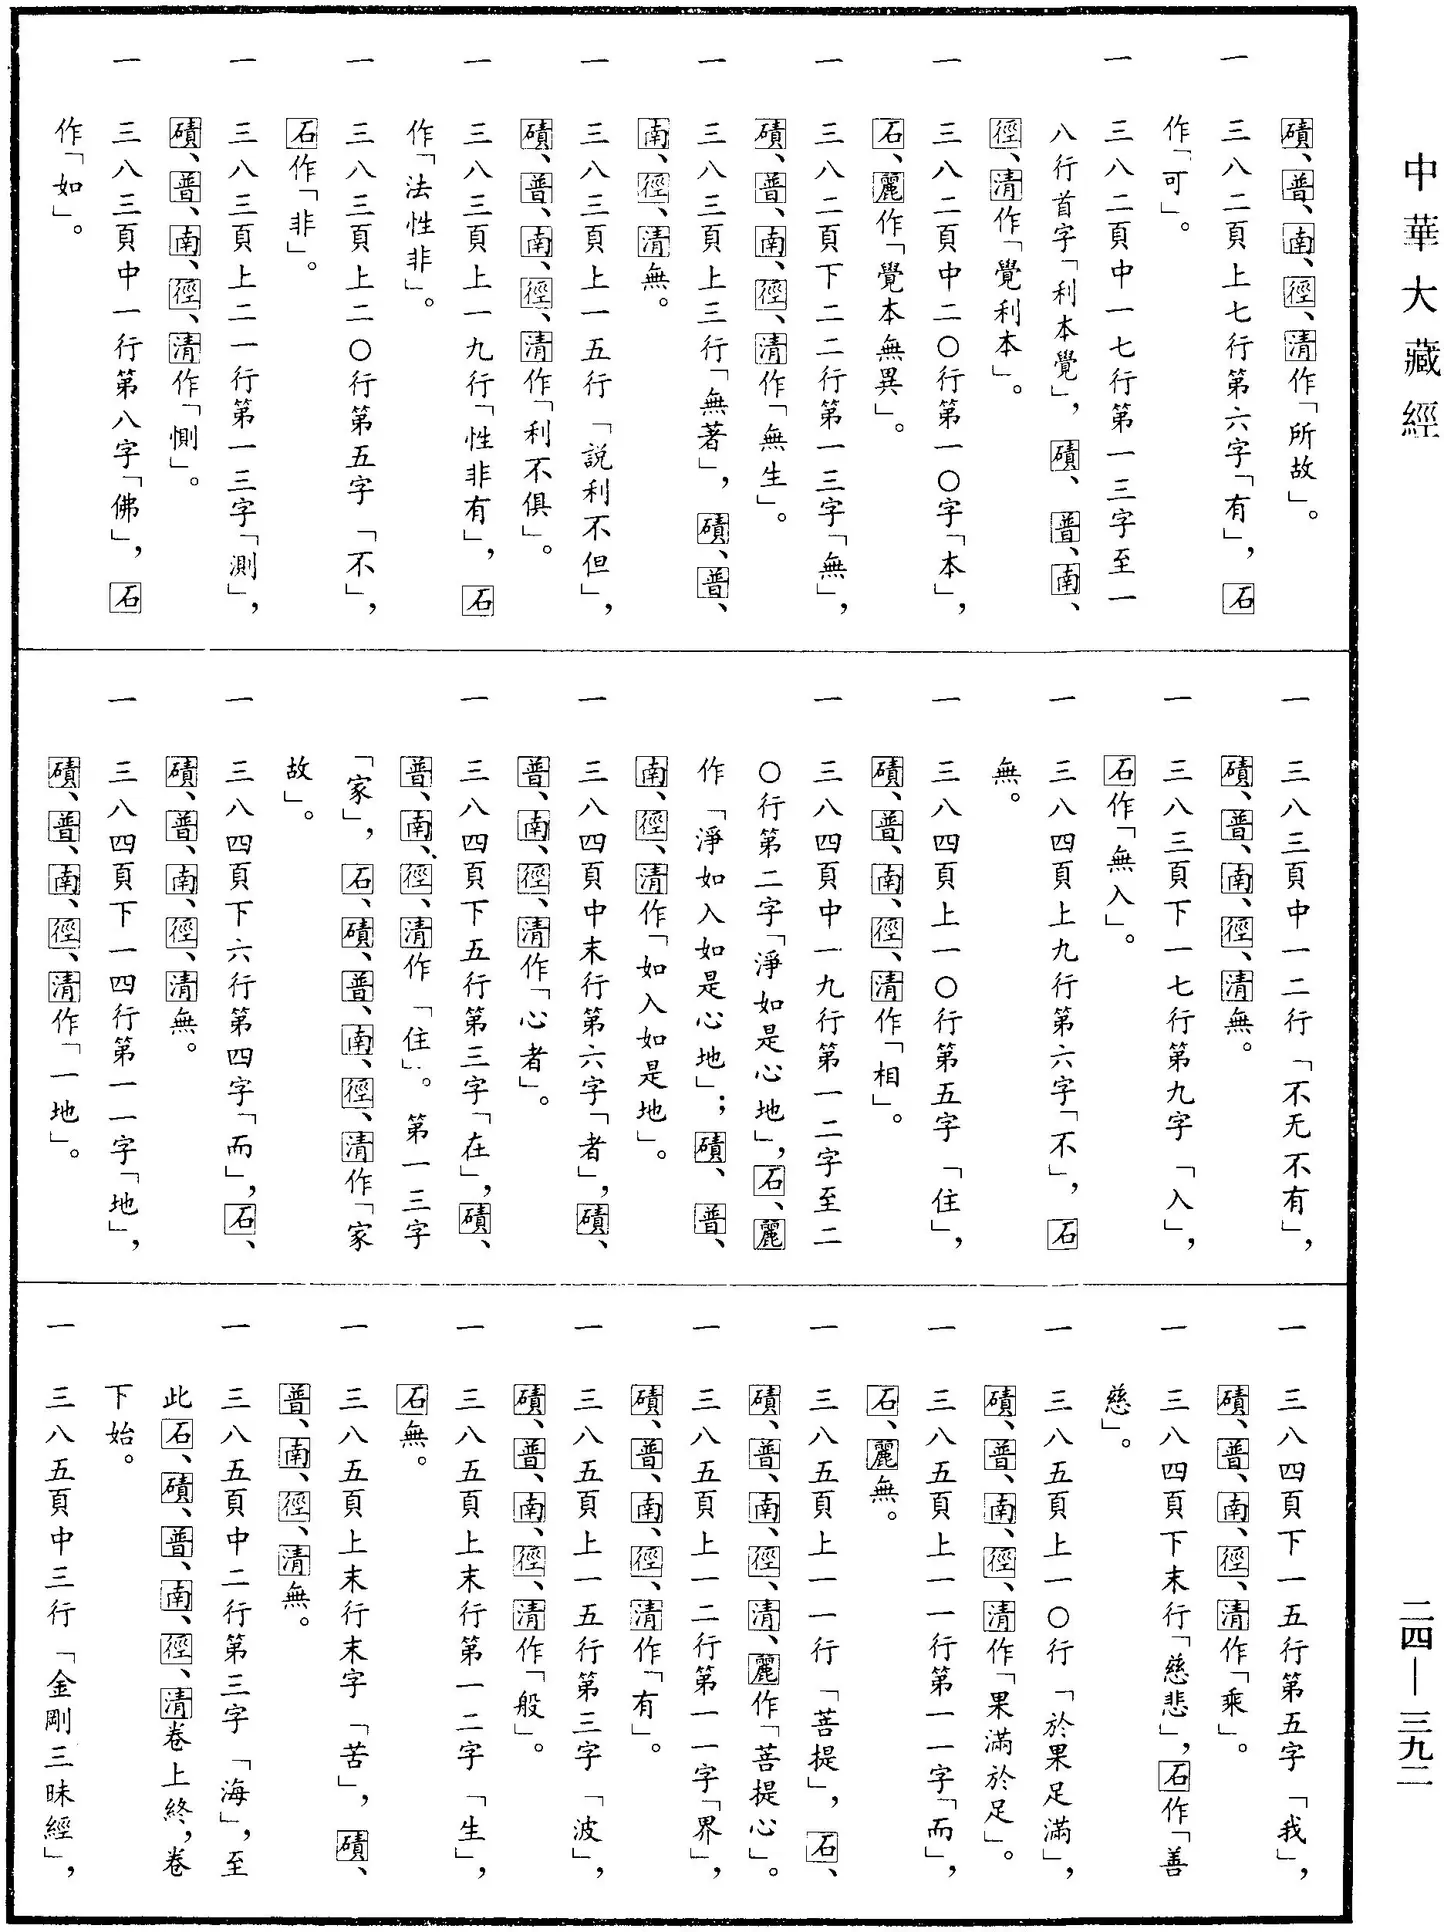 中華大藏經
二四—三九二
磧、普、南、徑、清作「所故」。
一　三八二頁上七行第六字「有」，石
作「可」。
一　三八二頁中一七行第一三字至一
八行首字「利本覺」，磧、普、南、
徑、清作「覺利本」。
一　三八二頁中二〇行第一〇字「本」，
石、麗作「覺本無異」。
一　三八二頁下二二行第一三字「無」，
磧、普、南、徑、清作「無生」。
一　三八三頁上三行「無著」，磧、普、
南、徑、清無。
一　三八三頁上一五行「說利不但」，
磧、普、南、徑、清作「利不俱」。
一　三八三頁上一九行「性非有」，石
作「法性非」。
一　三八三頁上二〇行第五字「不」，
石作「非」。
一　三八三頁上二一行第一三字「測」，
磧、普、南、徑、清作「惻」。
一　三八三頁中一行第八字「佛」，石
作「如」。
一　三八三頁中一二行「不无不有」，
磧、普、南、徑、清無。
一　三八三頁下一七行第九字「入」，
石作「無入」。
一　三八四頁上九行第六字「不」，石
無。
一　三八四頁上一〇行第五字「住」，
磧、普、南、徑、清作「相」。
一　三八四頁中一九行第一二字至二
〇行第二字「淨如是心地」，石、麗
作「淨如入如是心地」；磧、普、
南、徑、清作「如入如是地」。
一　三八四頁中末行第六字「者」，磧、
普、南、徑、清作「心者」。
一　三八四頁下五行第三字「在」，磧、
普、南、徑、清作「住」。第一三字
「家」，石、磧、普、南、徑、清作「家
故」。
一　三八四頁下六行第四字「而」，石、
磧、普、南、徑、清無。
一　三八四頁下一四行第一一字「地」，
磧、普、南、徑、清作「一地」。
一　三八四頁下一五行第五字「我」，
磧、普、南、徑、清作「乘」。
一　三八四頁下末行「慈悲」，石作「善
慈」。
一　三八五頁上一〇行「於果足滿」，
磧、普、南、徑、清作「果滿於足」。
一　三八五頁上一一行第一一字「而」，
石、麗無。
一　三八五頁上一一行「菩提」，石、
磧、普、南、徑、清、麗作「菩提心」。
一　三八五頁上一二行第一一字「界」，
磧、普、南、徑、清作「有」。
一　三八五頁上一五行第三字「波」，
磧、普、南、徑、清作「般」。
一　三八五頁上末行第一二字「生」，
石無。
一　三八五頁上末行末字「苦」，磧、
普、南、徑、清無。
一　三八五頁中二行第三字「海」，至
此石、磧、普、南、徑、清卷上終，卷
下始。
一　三八五頁中三行「金剛三昧經」，